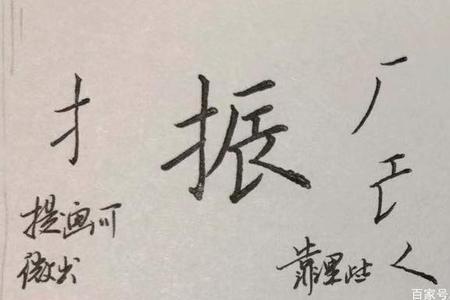 扌
振
提画可
微出
靠里些
百家号